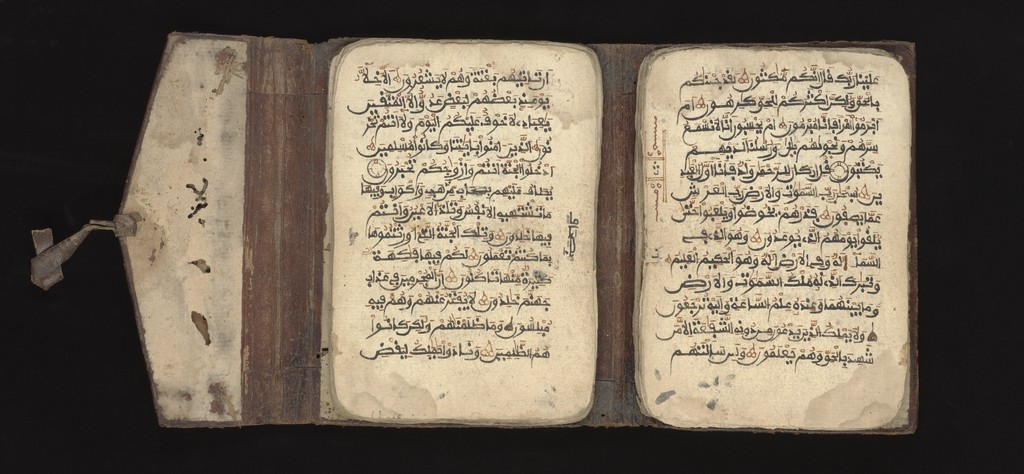 ان تاتيهم بغتة وهم لا يشعرون الاخلاء
يومئذ بعضهم لبعض عدو الا المتقين
يعباد لا خوف عليكم اليوم ولا انتم تحز
نون الذين امنوا بايتنا وكانوا مسلمين
ادخلوا الجنة انتم وازوجكم تحبرون
يطاف عليهم بصحاف من ذهب واكواب وفيها
ما تشتهيه الانفس وتلذ الاعين وانتم
فيها خلدون وتلك الجنة التي اورثتموها
بما كنتم تعملون لكم فيها فكهة
كثيرة منها تاكلون ان المجرمين في عذاب
جهنم خلدون لا يفتر عنهم وهم فيه
مبلسون وما ظلمنهم ولكن كانوا
هم الظلمين ونادوا يملك ليقض
علينا ربك قال انكم مكثون لقد جئنكم
بالحق ولكن اكثركم للحق كرهون ام
ابرموا امرا فانا مبرمون ام يحسبون انا لا نسمع
سرهم ونجويهم بلى ورسلنا لديهم
يكتبون قل ان كان للرحمن ولد فانا اول العبد
ين سبحن رب السموت والارض رب العرش
عما يصفون فذرهم يخوضوا ويلعبوا حتى
يلقوا يومهم الذي يوعدون وهو الذي في
السماء اله وفي الارض اله وهو الحكيم العليم
وتبرك الذي له ملك السموت والارض
وما بينهما وعنده علم الساعة واليه ترجعون
ولا يملك الذين يدعون من دونه الشفعة الا من
شهد بالحق وهم يعلمون ولئن سالتهم